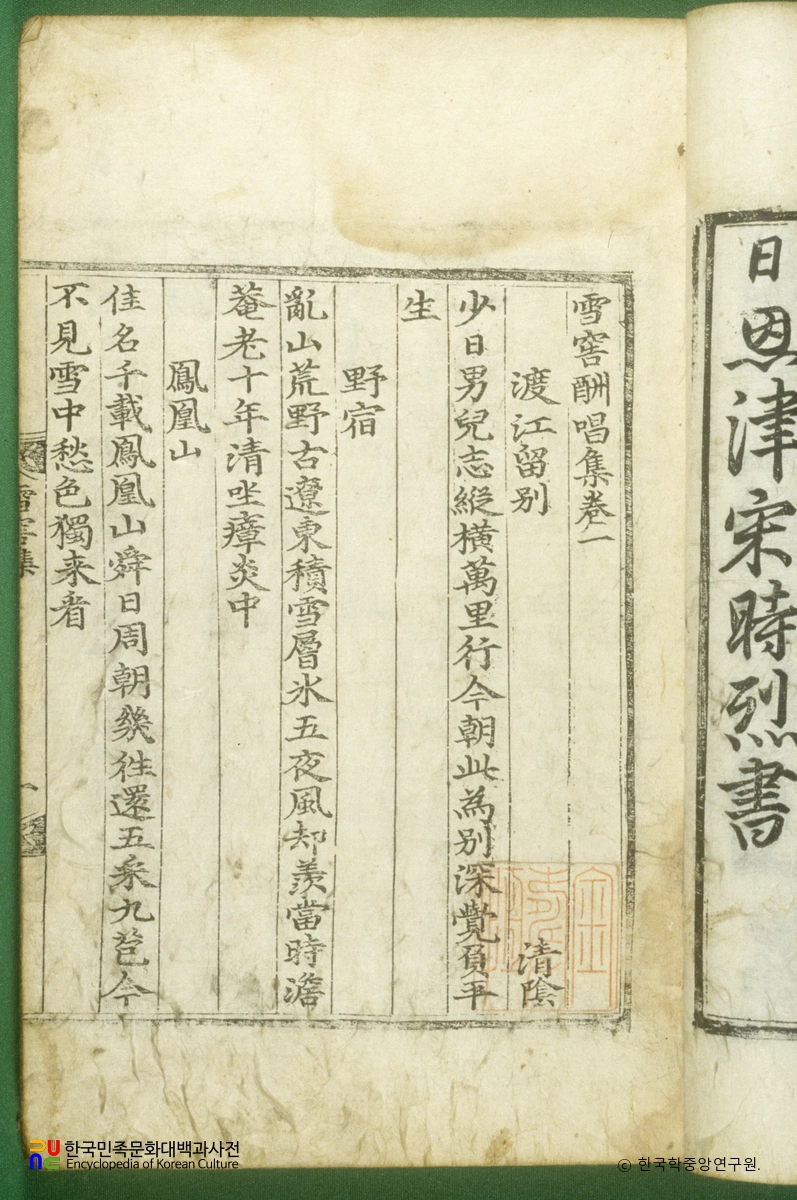 日恩津宋時烈書
雪窖酬唱集卷一
渡江留別 清陰
少日男兒志縱橫萬里行今朝此為別深覺負平
生
野宿
亂山荒野古遼東積雪層氷五夜風却羨當時澹
菴老十年清坐瘴炎中
鳳凰山
佳名千載鳳凰山舜日周朝幾往還五采九苞今
不見雪中愁色獨来看
雪窖集
한국민족문화대백과사전
Encyclopedia of Korean Culture
© 한국학중앙연구원.